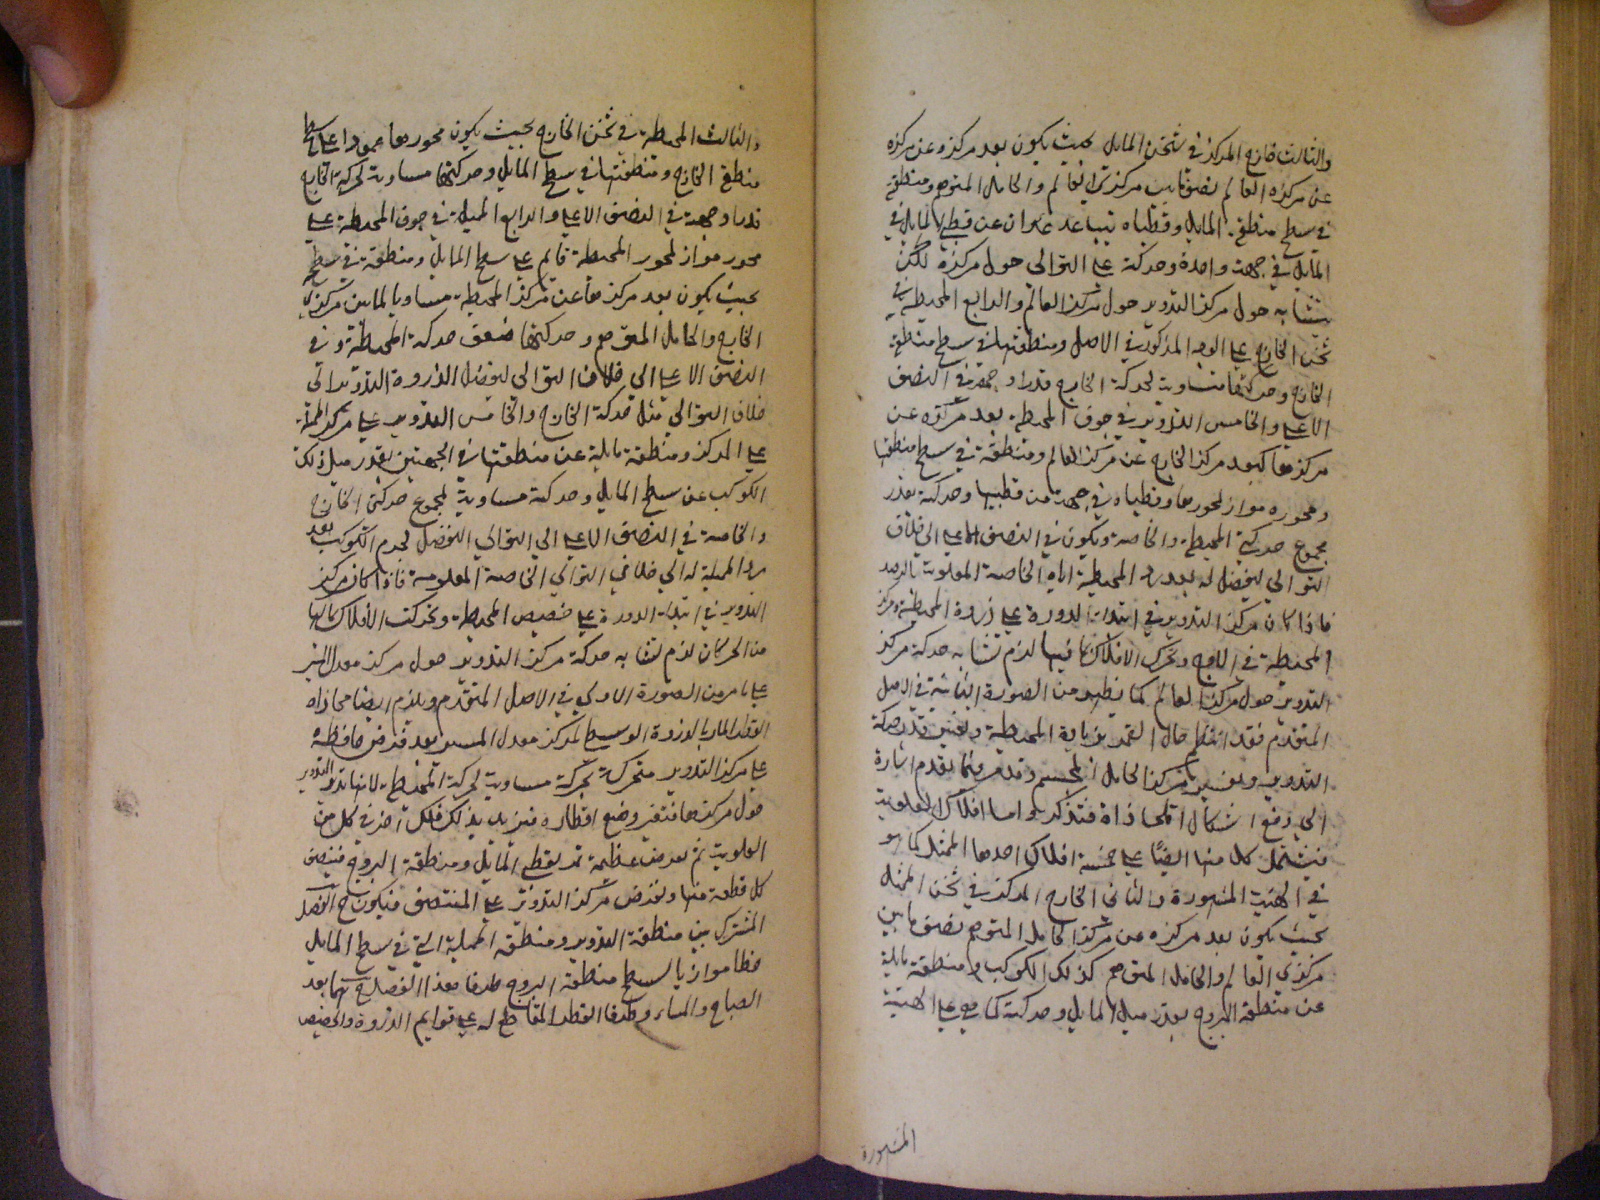 والثالث خارج المركز في ثخن المايل بحيث يكون بعد مركزه عن مركزه
عن مركزه العالم نصف ما بين مركزي العالم والحامل المتوهم ومنطقته
في سطح منطقة المايل وقطباه يتباعدان عن قطبي المايل في
المايل في جهة واحدة وحركته على التوالي حول مركزه لكن
يتشابه حول مركز التدوير حول مركز العالم والرابع المحيطة في
ثخن الخارج على الوجه المذكور في الاصل ومنطقتها في سطح منطقة
الخارج وحركتها متساوية لحركة الخارج قدرا وجهة في النصف
الاعلى والخامس التدوير في جوف المحيطة بعد مركزه عن
مركزها كبعد مركز الخارج عن مركز العالم ومنطقته في سطح منطقتها
ومحوره مواز لمحورها وقطباه في جهة من قطبيها وحركته بقدر
مجموع حركتي المحيطة والخاصة ويكون في النصف الاعلى الى خلاف
التوالي ليفضل له بعد رد المحيطة اياه الخاصة المعلومة بالرصد
فاذا كان مركز التدوير في ابتداء الدورة على ذروة المحيطة ومركز
المحيطة في الاوج وتحرك الافلاك بما فيها لزم تشابه حركة مركز
التدوير حول مركز العالم كما يظهر من الصورة الثانية في الاصل
المتقدم فقد انتظم حال القمر بزيادة المحيطة وبغير قدر حركة
التدوير وبغير مركز الحامل المجسم وقد مر فيما تقدم اشارة
الى دفع اشكال المحاذاة فتذكر واما افلاك العلوية
فيشتمل كل منها ايضا على خمسة افلاك احدها الممثل كما هو
في الهيئة المشهورة والثاني الخارج المركز في ثخن الممثل
بحيث يكون بعد مركزه عن مركز الحامل المتوهم نصف ما بين
مركزي العالم والحامل المتوهم كذلك الكوكب ومنطقته مايلة
عن منطقة البروج بقدر ميل المايل وحركته كما هي على الهيئة
المشهورة
والثالث المحيطة في ثخن الخارج بحيث يكون محورها عمودا على سطح
منطقة الخارج ومنطقتها في سطح المايل وحركتها مساوية لحركة الخارج
قدرا وجهة في النصف الاعلى والرابع المميلة في جوف المحيطة على
محور مواز لمحور المحيطة قايم على سطح المايل ومنطقته في سطحه
بحيث يكون بعد مركزها عن مركز المحيطة مساويا لما بين مركزي
الخارج والحامل المتوهم وحركتها ضعف حركة المحيطة وفي
النصف الاعلى الى خلاف التوالي ليفضل الذروة التدوير الى
خلاف التوالي مثل حركة الخارج والخامس التدوير على مركز المميلة
على المركز ومنطقته مايلة عن منطقتها في الجهتين بقدر ميل ذلك
الكوكب عن سطح المايل وحركته مساوية لمجموع حركتي الخارج
والخاصة في النصف الاعلى الى التوالي ليفضل لجرم الكوكب بعد
رد المميلة له الى خلاف التوالي الخاصة المعلومة فاذا كان مركز
التدوير في ابتداء الدورة على حضيض المحيطة وتحركت الافلاك بما لها
من الحركات لزم تشابه حركة مركز التدوير حول مركز معدل المسير
على ما مر من الصورة الاولى في الاصل المتقدم ويلزم ايضا محاذاة
القطر المار بالذروة الوسطى لمركز معدل المسير بعد فرض حافظة
على مركز التدوير متحركة بحركة مساوية لحركة المحيطة لانها تدير التدوير
حول مركزها فتغير وضع اقطاره فنزيد بذلك فلكا اخر في كل من
العلوية ثم بعد فعظيمة تمر بقطبي المايل ومنطقة البروج فينصف
كل قطعة منها ولنفرض مركز التدوير على المنتصف فيكون ح الفصل
المشترك بين منطقة التدوير ومنطقة المميلة التي في سطح المايل
خطا موازيا لسطح منطقة البروج طرفا هذا الفصل ح هما بعد
الصباح والمساء وطرفا القطر المقاطع له على قوايم الذروة والحضيض